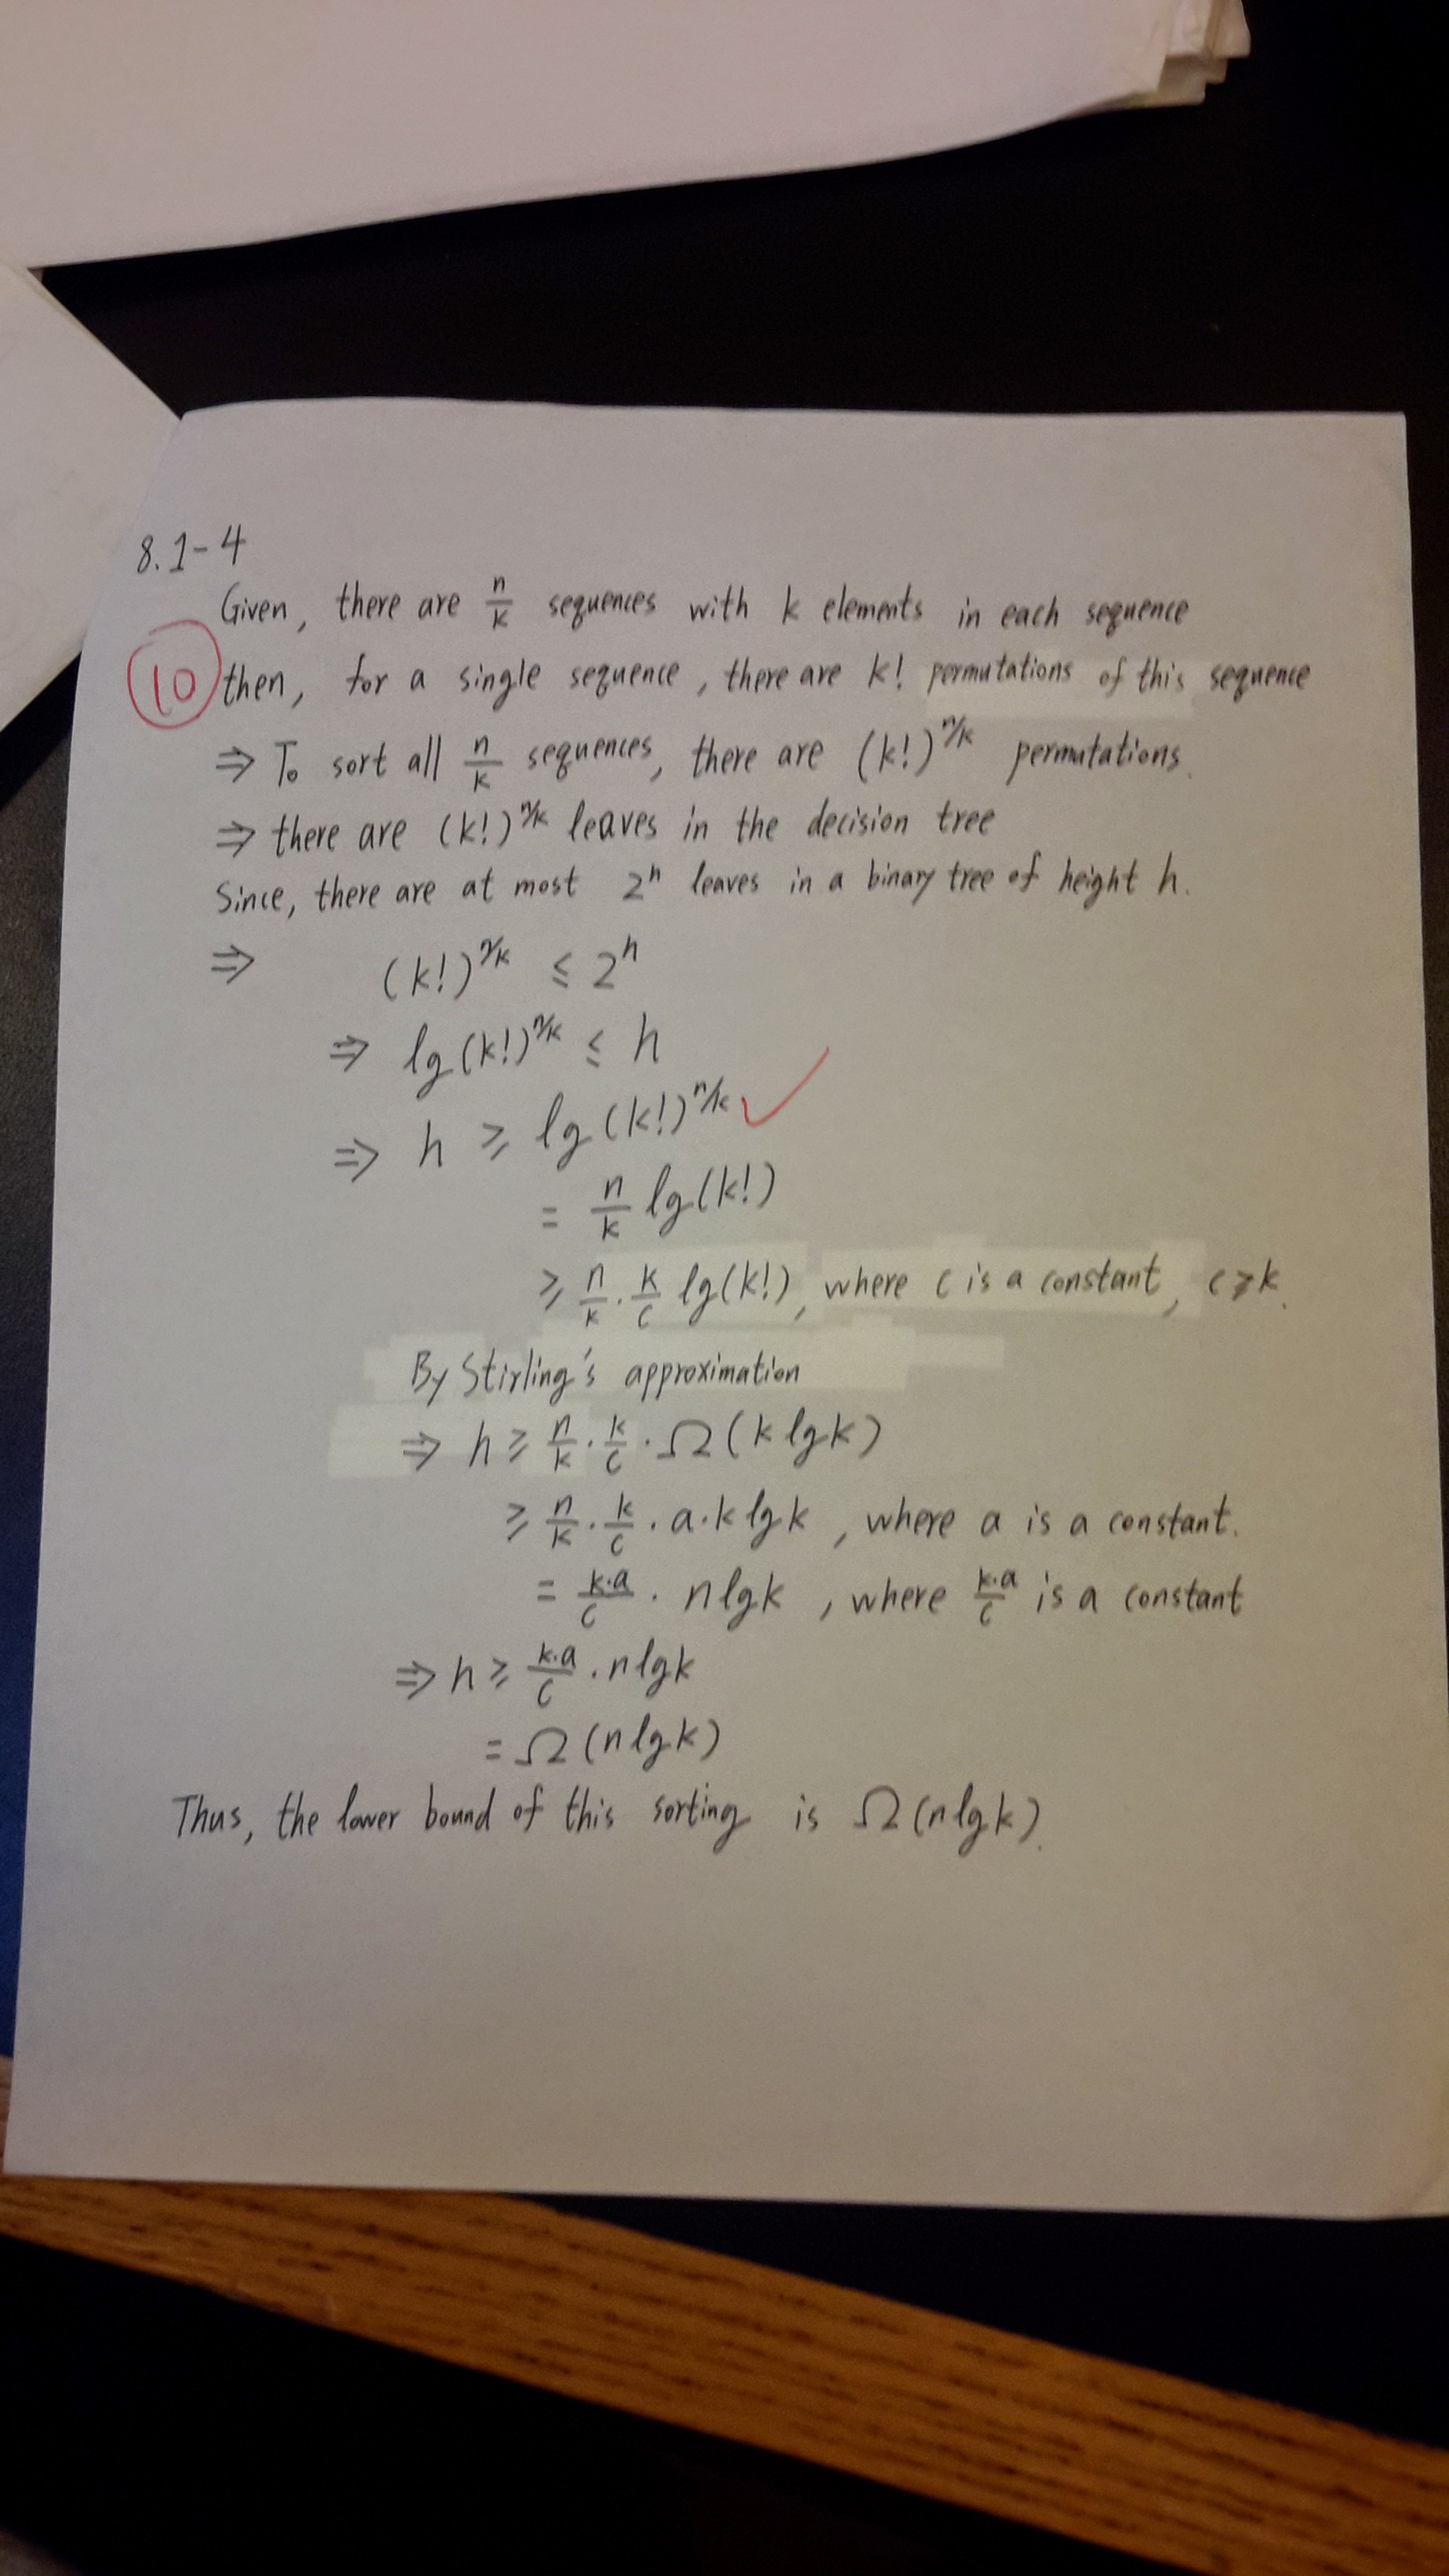 8.1-4
Given, there are n/k sequences with k elements in each sequence
10 then, for a single sequence, there are k! permutations of this sequence
⇒ To sort all n/k sequences, there are (k!)^n/k permutations.
⇒ there are (k!)^n/k leaves in the decision tree
Since, there are at most 2^h leaves in a binary tree of height h.
⇒ (k!)^n/k ≤ 2^h
⇒ lg(k!)^n/k ≤ h
⇒ h ≥ lg(k!)^n/k ✓
= n/k lg(k!)
≥ n/k · k/c lg(k!), where c is a constant, c ≥ k.
By Stirling's approximation
⇒ h ≥ n/k · k/c · Ω(k lg k)
≥ n/k · k/c · a · k lg k, where a is a constant.
= k·a/c · n lg k, where k·a/c is a constant
⇒ h ≥ k·a/c · n lg k
= Ω(n lg k)
Thus, the lower bound of this sorting is Ω(n lg k).